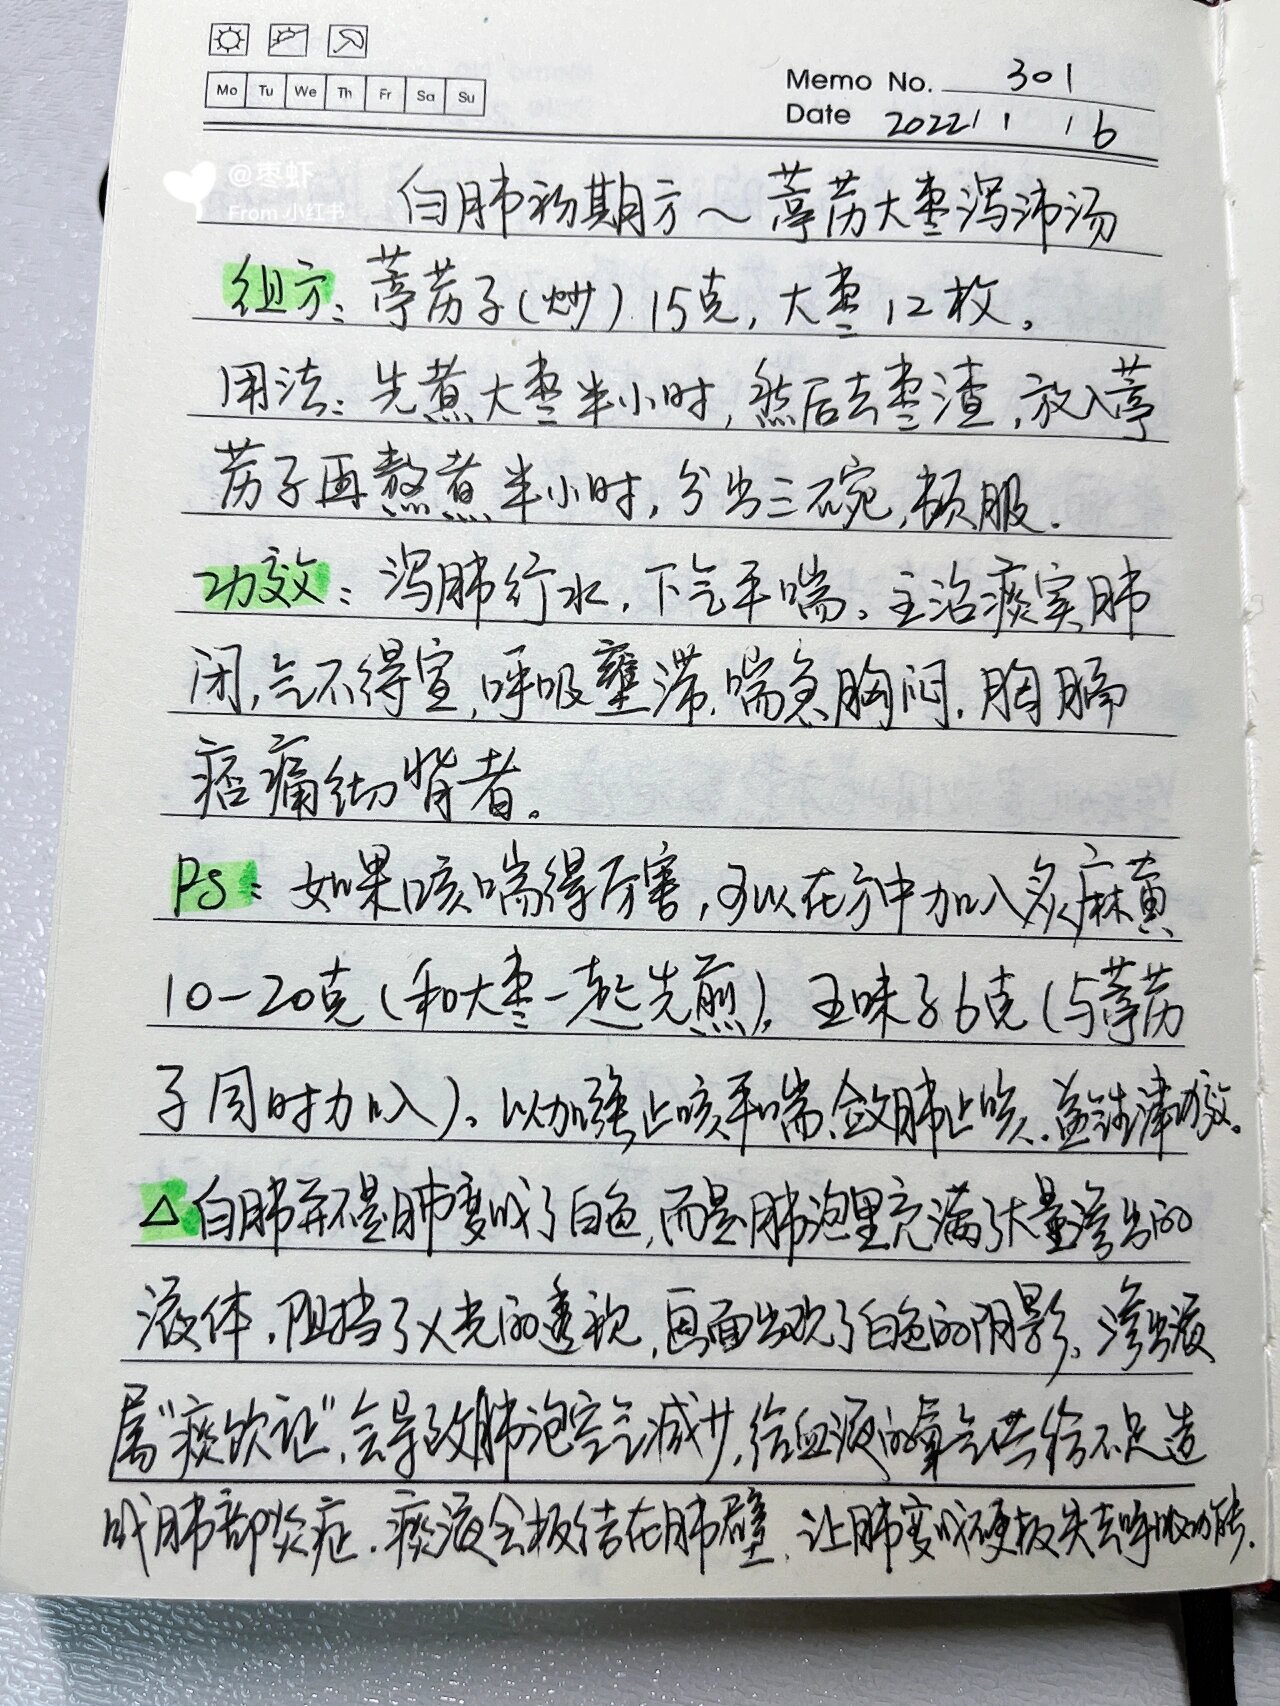 Mo Tu We Th Fr Sa Su
Memo No. 301
Date 2022/1/16
@枣虾
From 小红书
白肺初期方~葶苈大枣泻沛汤
组方：葶苈子(炒)15克，大枣12枚。
用法：先煮大枣半小时，然后去枣渣，放入葶
苈子再熬煮半小时，分出三碗，顿服.
功效：泻肺行水，下气平喘。主治痰实肺
闭，气不得宣，呼吸壅滞，喘急胸闷，胸膈
痞痛彻背者。
PS：如果咳喘得厉害，可以在方中加入炙麻黄
10-20克(和大枣一起先煎)，五味子6克(与葶苈
子同时加入)。以加强止咳平喘、敛肺止咳、益气生津功效。
△白肺并不是肺变成了白色，而是肺泡里充满了大量渗出的
液体，阻挡了X光的透视，画面出现了白色的阴影。渗出液
属“痰饮证”，会导致肺泡空气减少，给血液的氧气供给不足造
成肺部炎症，痰液会板结在肺壁，让肺变成硬板失去呼吸功能.